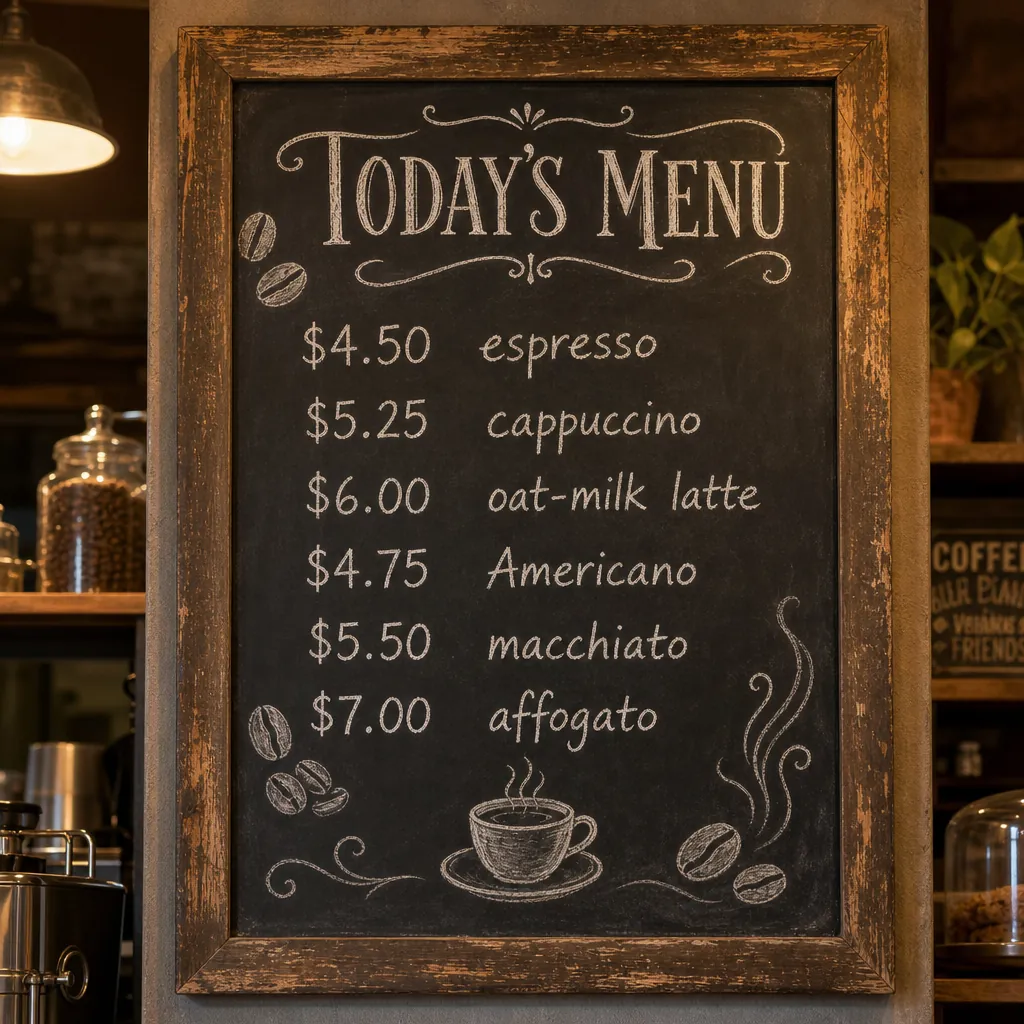 TODAY'S MENU
$4.50 espresso
$5.25 cappuccino
$6.00 oat-milk latte
$4.75 Americano
$5.50 macchiato
$7.00 affogato
COFFEE
FRIENDS